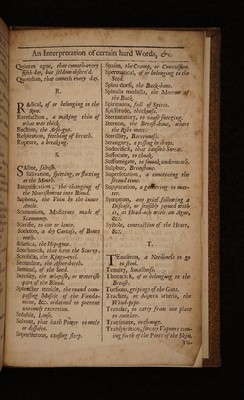 An Interpretation of certain hard Words, &c.
Quintan ague, that cometh every
fifth day, but seldom observ'd.
Quotidian, that cometh every day.
R.
Radical, of or belonging to the
Root.
Rarefaction, a making thin of
what was thick.
Rectum, the Arse-gut.
Respiration, fetching of breath.
Rupture, a breaking.
S.
Saline, saltish.
Salivation, spitting, or fluxing
at the Mouth.
Sanguification, the changing of
the Nourishment into Blood.
Saphena, the Vein by the inner
Ancle.
Scammonia, Medicines made of
Scammony.
Scarifie, to cut or lance.
Sciatica, the Hip-gout.
Scorbutick, that have the Scurvy.
Scrofula, the Kings-evil.
Secundine, the After-birth.
Seminal, of the Seed.
Serosity, the waterish
part of the Blood.
Sphincter muscle, the round com-
passing Muscle of the Funda-
ment, &c. ordained to prevent
excretion.
Soluble, Loose.
Solvent, that hath Power to melt
or dissolve.
Soporiferous, causing sleep.
Spasm, the Cramp, or Convulsion.
Spermatical, of or belonging to the
Seed.
Spina dorsi, the Back-bone.
Spinalis medulla, the Marrow of
the Back.
Spirituous, full of Spirit.
Spissitude, thickness.
Sternutatory, to cause sneezing.
Sternon, the Breast-bone, where
the Ribs meet.
Sterility, Barrenness.
Strangury, a pissing by drops.
Sudorifick, that causeth Sweat.
Suffocate, to choak.
Suffumigate, to smoak underneath.
Sulphur, Brimstone.
Superfetation, a conceiving the
second time.
Suppuration, a gathering to mat-
ter.
Symptom, any grief following a
Disease, or sensibly joined with
it, as Head-ach with an Ague,
&c.
Systole, contraction of the Heart,
&c.
T.
Tenuity, Smallness.
Thoracick, of or belonging to the
Breast.
Torsions, gripings of the Guts.
Trachea, or Aspera arteria, the
Wind-pipe.
Transfer, to carry from one place
to another.
Transmute, to change.
Transpiration, Vapours com-
ing forth of the Pores of the Skin.